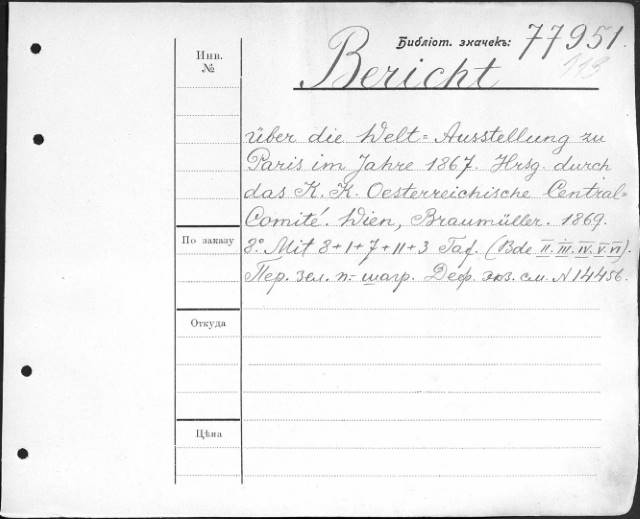 Библіот. значекъ: 77951.
113
Bericht
Инв. №
über die Welt=Ausstellung zu
Paris im Jahre 1867. Hrsg. durch
das K. K. Oesterreichische Central=
Comité. Wien, Braumüller. 1869.
По заказу
8º. Mit 8+1+7+11+3 Taf. (Bde II. III. IV. V. VI).
Пер. зел. п-шагр. Деф. экз. см. N 14456.
Откуда
Цѣна